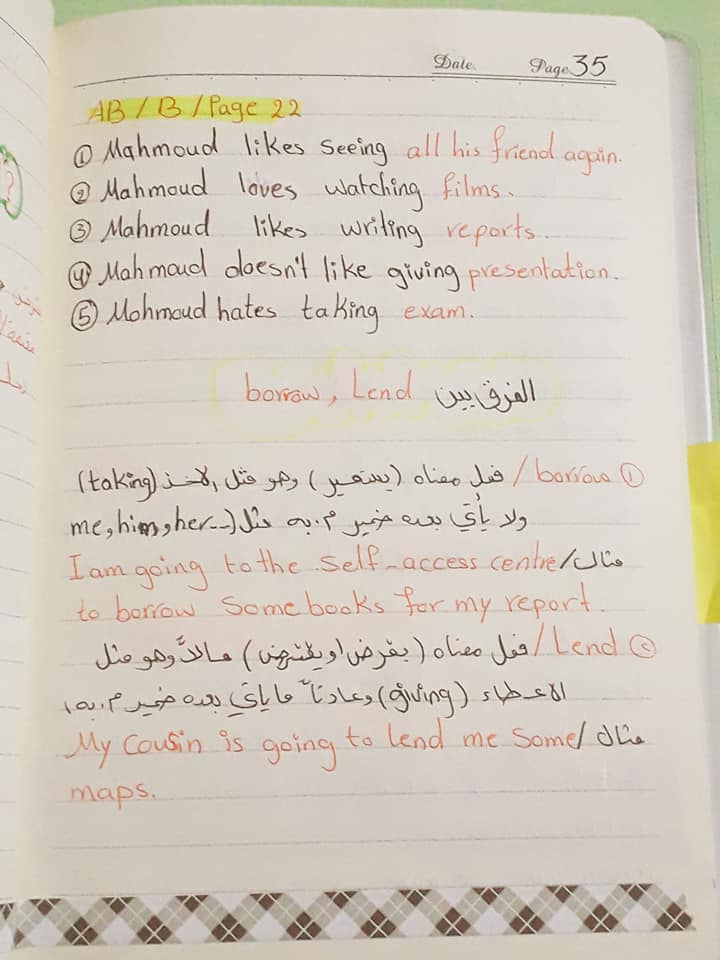 Date. Page 35
AB / B / Page 22
① Mahmoud likes seeing all his friend again.
② Mahmoud loves watching films.
③ Mahmoud likes writing reports.
④ Mahmoud doesn't like giving presentation.
⑤ Mohmoud hates taking exam.
الفرق بين borrow, Lend
① borrow / فعل معناه (يستعير) وهو مثل الاخذ (taking)
ولا يأتي بعده ضمير م.به مثل (me, him, her..
مثال/ I am going to the self-access centre
to borrow some books for my report.
② Lend / فعل معناه (يقرض او يقترض) مالاً وهو مثل
الاعطاء (giving) وعادتاً ما يأتي بعده ضمير م.به
مثال / My cousin is going to lend me some
maps.